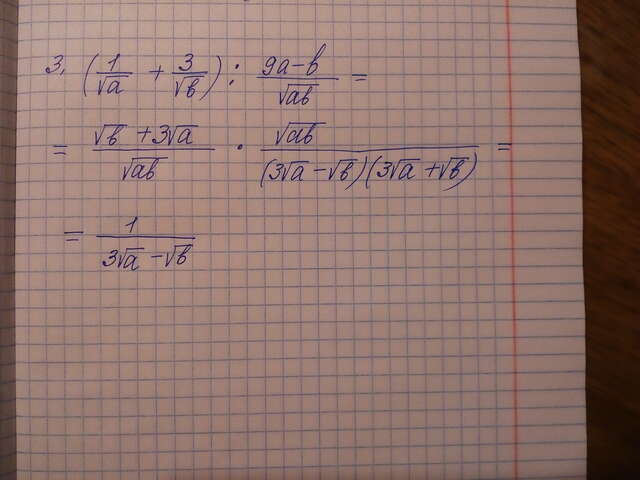 3. (1/√a + 3/√b) : 9a-b/√ab =
= √b + 3√a/√ab · √ab/(3√a - √b)(3√a + √b) =
= 1/3√a - √b